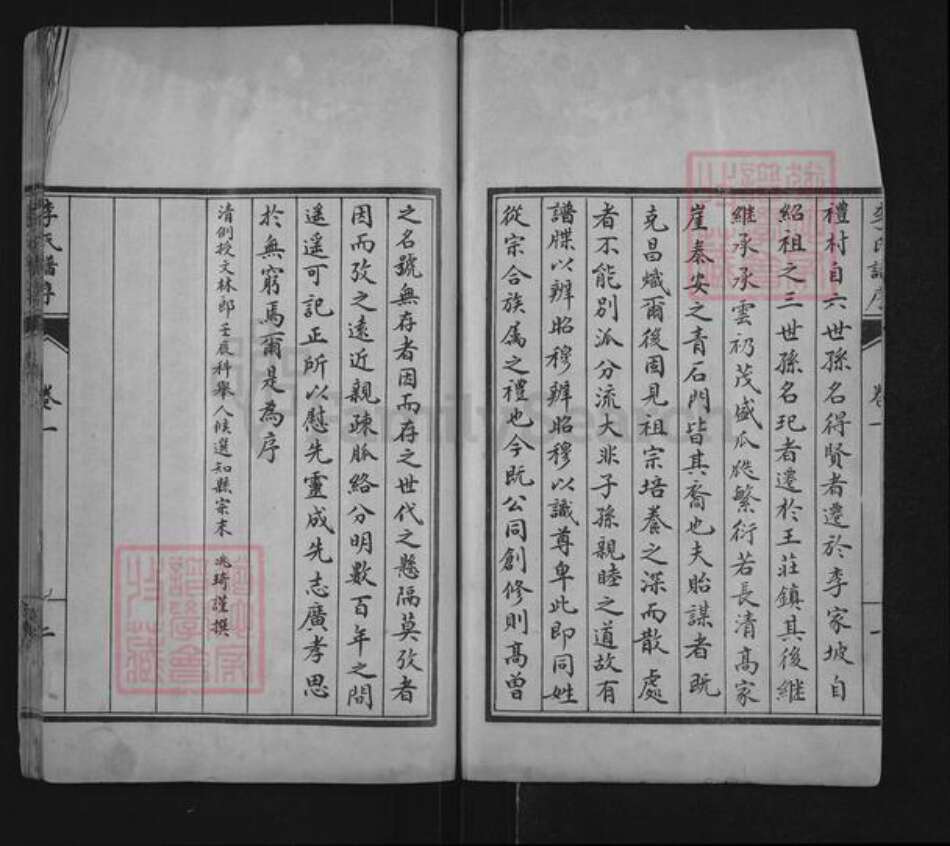 李氏譜序
卷一
一
禮村自六世孫名得賢者遷於李家坡自
紹祖之三世孫名玘者遷於王莊鎮其後繼
繼承承雲礽茂盛瓜瓞繁衍若長清高家
崖秦安之青石門皆其裔也夫貽謀者既
克昌熾爾後固見祖宗培養之深而散處
者不能別派分流大非子孫親睦之道故有
譜牒以辨昭穆辨昭穆以識尊卑此即同姓
從宗合族屬之禮也今既公同創修則高曾
之名號無存者因而存之世代之懸隔莫攷者
因而攷之遠近親疎脈絡分明數百年之間
遥遥可記正所以慰先靈成先志廣孝思
於無窮焉爾是為序
清例授文林郎壬辰科舉人候選知縣宗末 兆琦謹撰
李氏譜序
卷一
二
FamilySearch